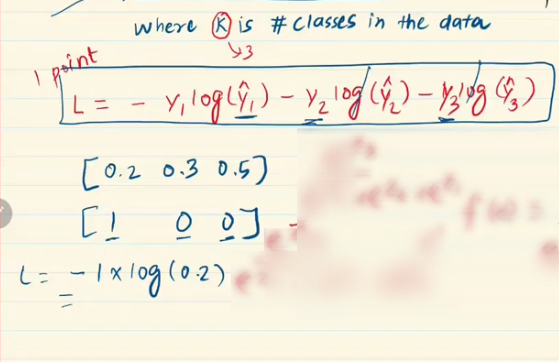 where K is # classes in the data
↳3
1 point
L = - y₁log(ŷ₁) - y₂log(ŷ₂) - y₃log(ŷ₃)
[0.2 0.3 0.5]
[1 0 0]
L = -1×log(0.2)